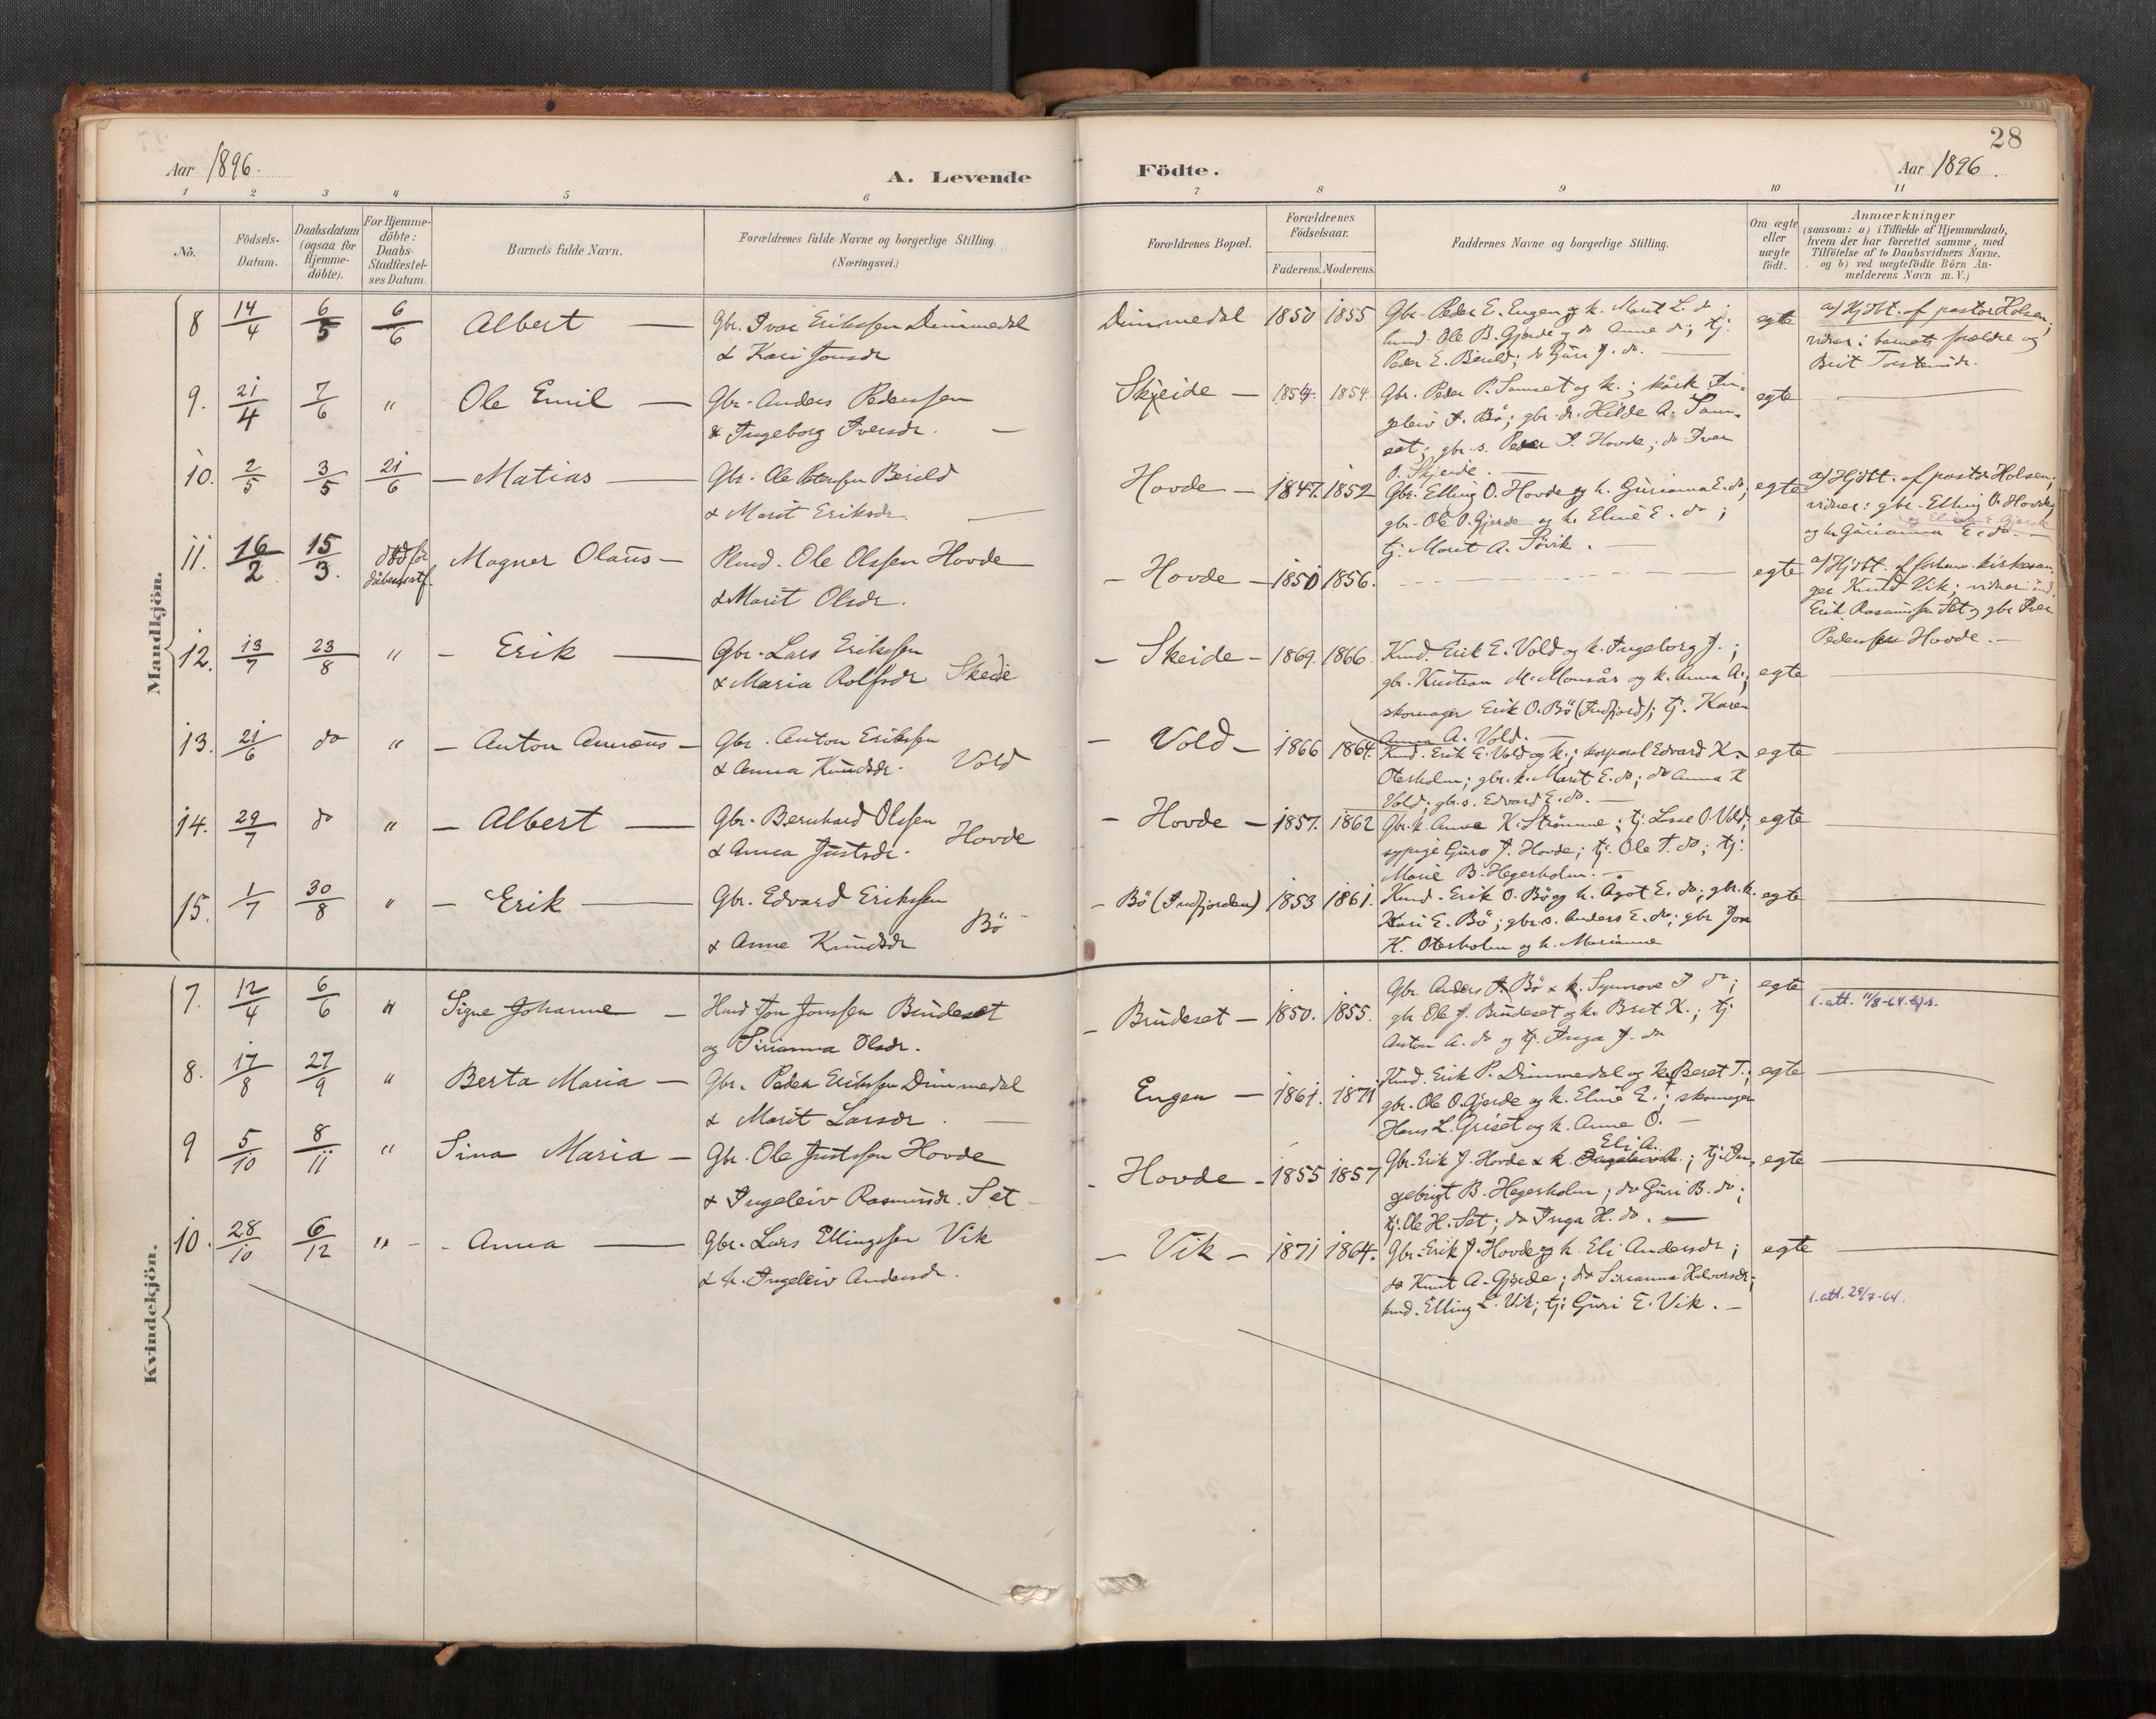 28
Aar 1896.
A. Levende Födte.
Aar 1896.
1 2 3 4 5 6 7 8 9 10 11
No.
Födsels-Datum.
Daabsdatum (ogsaa for Hjemme-döbte).
For Hjemme-döbte: Daabs-Stadfæstel-ses Datum.
Barnets fulde Navn.
Forældrenes fulde Navne og borgerlige Stilling.
(Næringsvei.)
Forældrenes Bopæl.
Forældrenes Födselsaar.
Faderens. Moderens.
Faddernes Navne og borgerlige Stilling.
Om ægte eller uægte födt.
Anmærkninger
(saasom: a) i Tilfælde af Hjemmedaab,
hvem der har forrettet samme, med
Tilföielse af to Daabsvidners Navne,
og b) ved uægtefödte Börn An-
melderens Navn m. V.)
Mandkjön.
8 14/4 6/5 6/6 Albert — Gbr. Ivar Erikssen Dimmedal Dimmedal 1850 1855 Gbr. Peder E. Engen og k. Marit L. do; egte a) Hjdbt. af pastor Holsen;
& Kari Jonsdr kund. Ole B. Gjerde og do Anne do; tj. vidner: barnets forældre og
Peder E. Bierld; do Guri J. do. — Brit Torsteinsdr.
9. 21/4 7/6 " Ole Emil — Gbr. Anders Pederssen Skjeide — 1854. 1854. Gbr. Peder P. Samset og k.; egte —
& Ingeborg Iversdr. — geleiv I. Bö; gbr. d. Hilde A. Sam-
set; gbr. s. Peder I. Hovde; do Iver
O. Skjeide. —
10. 2/5 3/5 21/6 — Matias — Gbr. Ole Peterssen Berild Hovde — 1847. 1852 Gbr. Elling O. Hovde og k. Gurianna E. do; egte a) Hjdbt. af pastor Holsen;
& Marit Eriksdr. — gbr. Ole O. Gjerde og k. Eline E. do; vidner: gbr. Elling O. Hovde
tj. Marit A. Sövik. — og k. Gurianna E. do. —
11. 16/2 15/3. död för Magner Olaus — Pund. Ole Olssen Hovde — Hovde — 1850 1856. egte a) Hjdbt. af forhenv. kirkesan-
& Marit Olsdr. ger Knud Vik; vidner: ind.
Erik Rasmussen Set og gbr Iver
Pederssen Hovde. —
12. 13/7 23/8 " — Erik — Gbr. Lars Erikssen — Skeide — 1869. 1866 Kund. Erik E. Vold og k. Ingeborg J.; egte —
& Maria Rolfsdr Skeide gbr. Kristian M. Monsås og k. Anna A.;
skomager Erik O. Bö (Indfjord); tj. Karen
Anna A. Vold. —
13. 21/6 do " — Anton Annæus — Gbr. Anton Erikssen — Vold — 1866 1864. Kund. Erik E. Vold og k.; korporal Edvard K. egte —
& Anna Knudsdr. Vold Oterholm; gbr. k. Marit E. do; do Anna K
Vold; gbr. s. Edvard E. do. —
14. 29/7 do " — Albert — Gbr. Bernhard Olssen — Hovde — 1857. 1862 Gbr. k. Anne K. Strömme; tj. Lise O. Vold; egte —
& Anna Justsdr. Hovde sypige Guro J. Hovde; tj. Ole T. do; tj.
Marie B. Hegerholm. —
15. 1/7 30/8 " — Erik — Gbr. Edvard Erikssen — Bö (Indfjorden) 1853 1861. Kund. Erik O. Bö og k. Agot E. do; gbr. k. egte —
& Anne Knudsdr Bö Kari E. Bö; gbr. s. Anders E. do; gbr Jon
K. Oterholm og k. Marianne
Kvindekjön.
7. 12/4 6/6 " Signe Johanne — Hund. Jon Jonssen Brudeset — Brudeset — 1850. 1855. Gbr. Anders A. Bö & k. Synnove I do; egte l. att. 11/8-64.
og Sirianna Olsdr. gbr Ole J. Brudeset og k. Brit K.; tj.
Anton A. do og tj. Inga J. do
8. 17/8 27/9 " Berta Maria — Gbr. Peder Erikssen Dimmedal Engen — 1861. 1871 Kund. Erik P. Dimmedal og k. Beret T.; egte —
& Marit Larsdr. — gbr. Ole O. Gjerde og k. Eline E.; skomager
Hans L. Griset og k. Anne O. —
9 5/10 8/11 " Sina Maria — Gbr. Ole Justssen Hovde — Hovde — 1855 1857 Gbr. Erik J. Hovde & k. Eli A.; tj. In- egte —
& Ingeleiv Rasmusdr. Set gebrigt B. Hegerholm; do Guri B. do;
tj. Ole H. Set; do Inga H. do. —
10. 28/10 6/12 " — Anna — Gbr. Lars Ellingssen Vik — Vik — 1871 1864. Gbr. Erik J. Hovde og k. Eli Andersdr; egte —
& k. Ingeleiv Andersdr. do Knut A. Gjerde; do Sirianna Halvorsdr;
kund. Elling L. Vik; tj. Guri E. Vik. — l. att. 29/7-64.